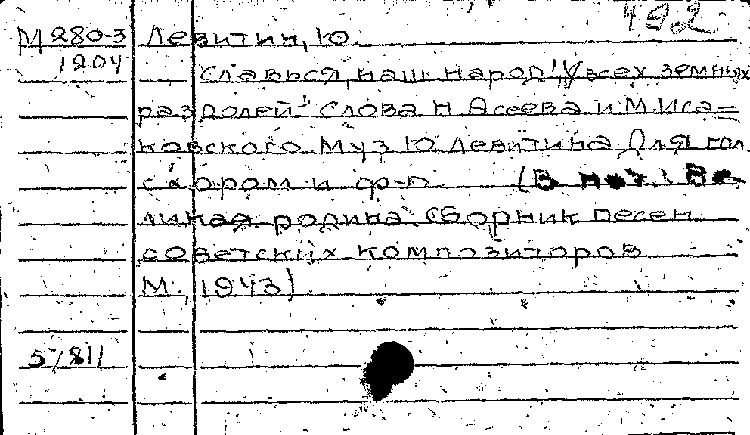 492
М 280-3 Левитин, Ю.
1204
Славься, наш народ! "У всех земных
раздолей" Слова Н. Асеева и М. Иса=
ковского. Муз. Ю. Левитина. Для гол.
с хором и ф-п. (В нот.: Ве-
ликая родина. Сборник песен
советских композиторов
М., 1943)
57811